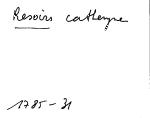 Resoirs catherine
1785-31